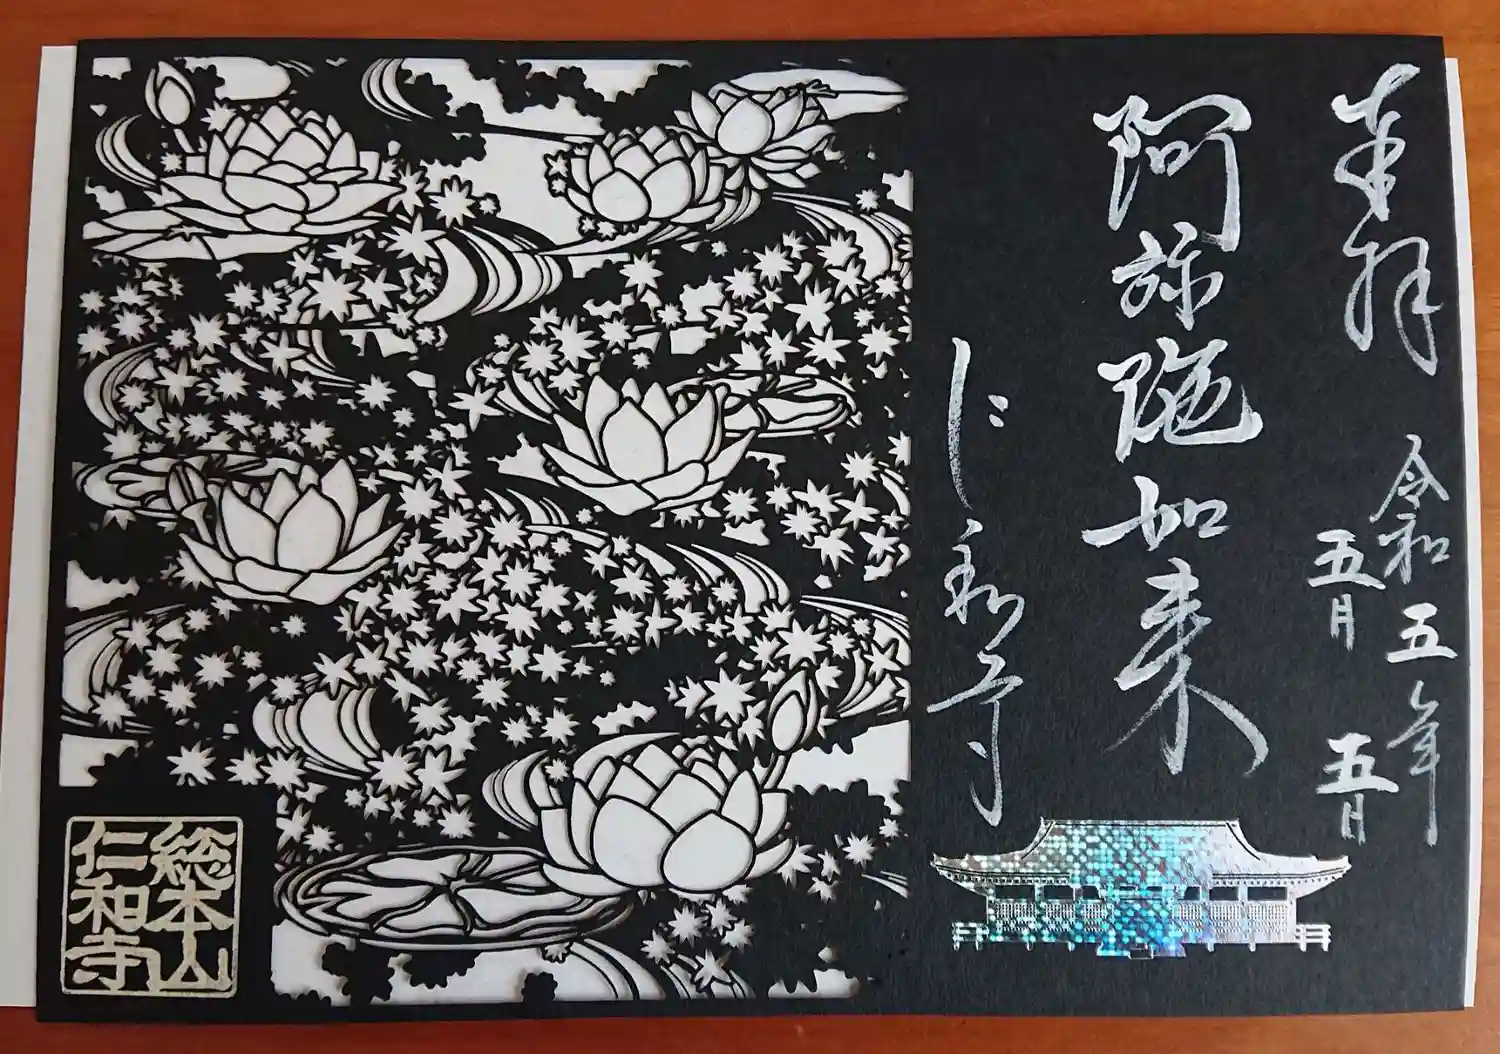 奉拝
令和五年
五月
五日
阿弥陀如来
仁和寺
総本山
仁和寺